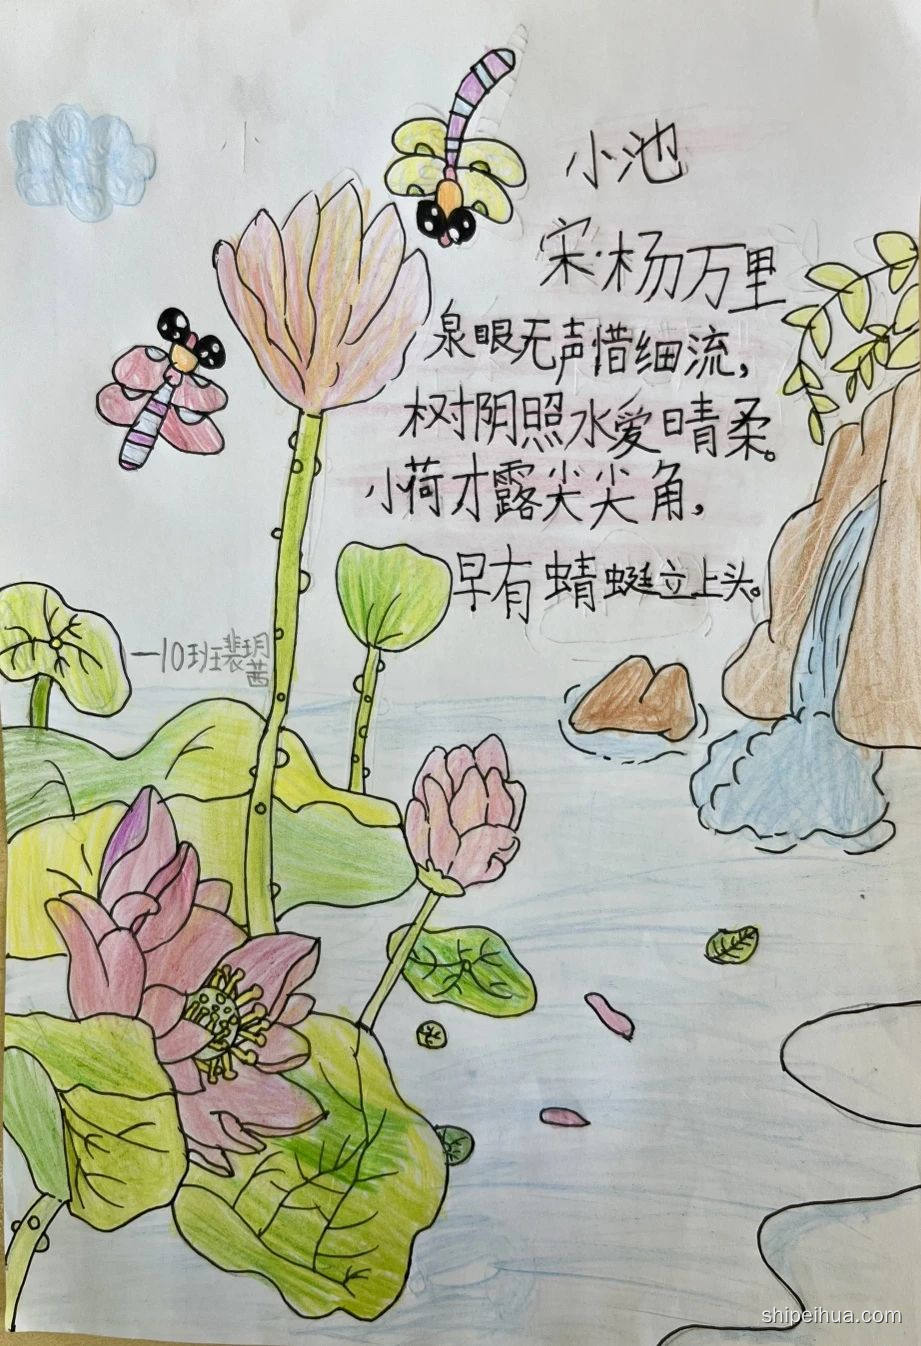 小池
宋·杨万里
泉眼无声惜细流，
树阴照水爱晴柔。
小荷才露尖尖角，
早有蜻蜓立上头。
一10班裴玥茜
shipeihua.com